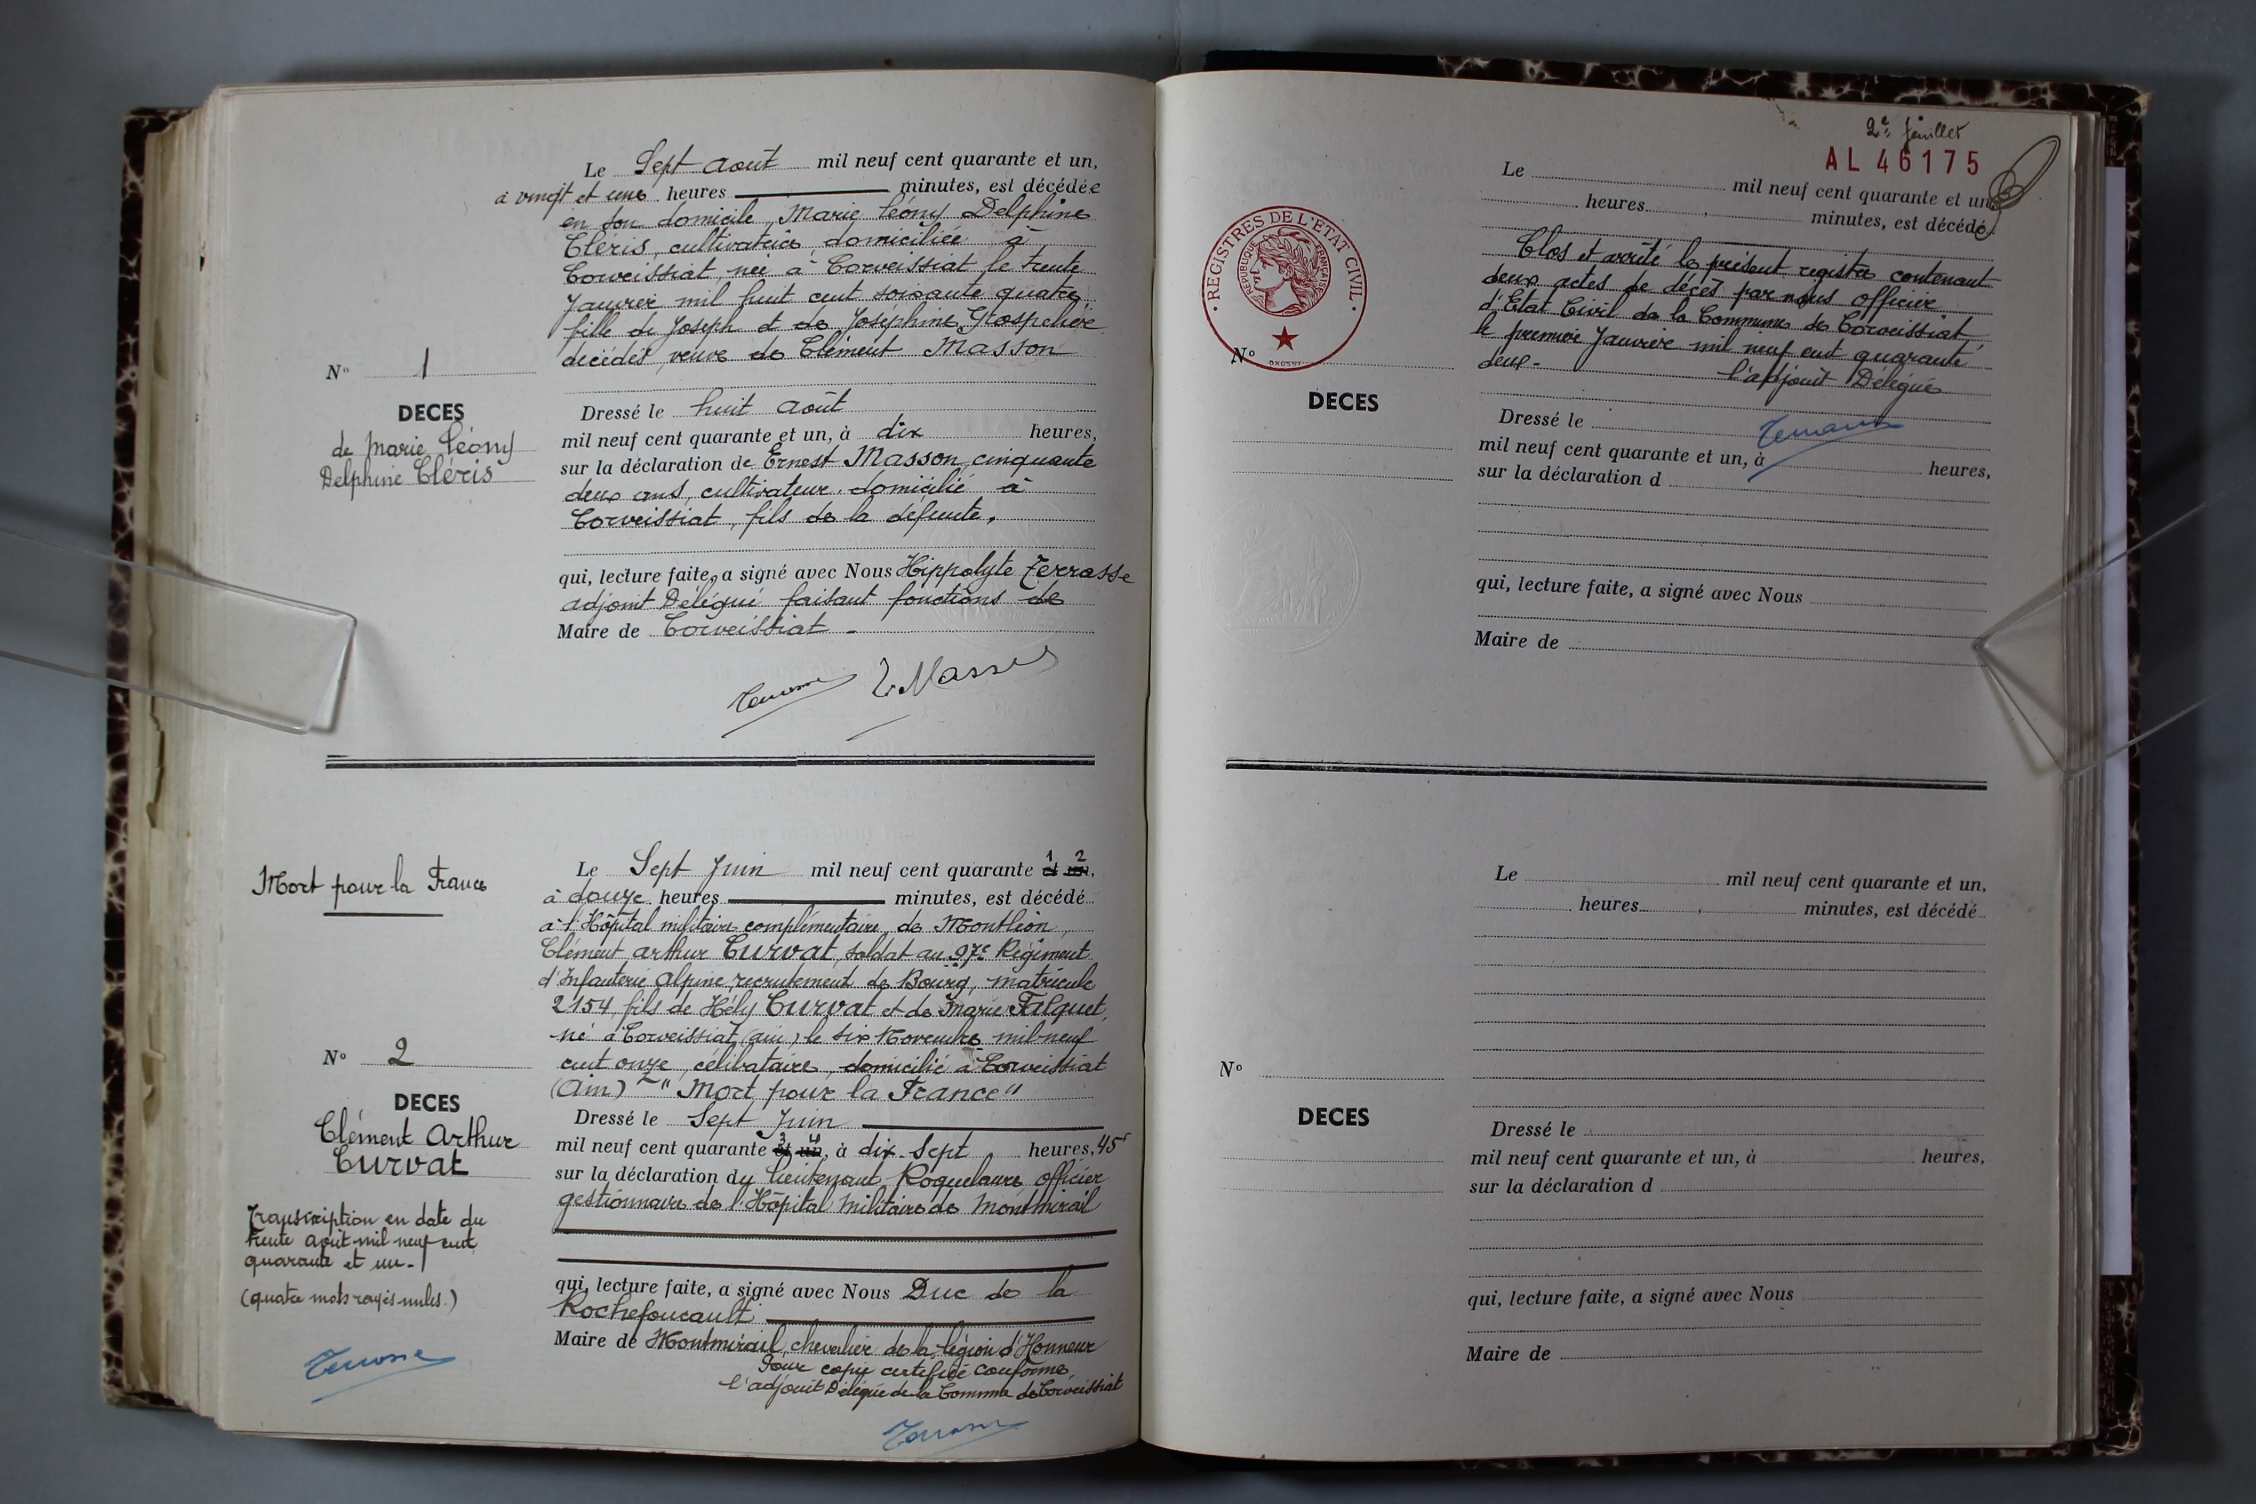 Le Sept août mil neuf cent quarante et un,
à vingt et une heures minutes, est décédée
en son domicile, Marie Léony Delphine
Cléris, cultivatrice domiciliée à
Corveissiat, née à Corveissiat le trente
Janvier mil huit cent soixante quatre,
fille de Joseph et de Joséphine Grospelier
décédés, veuve de Clément Masson
N° 1
DECES
de Marie Léony
Delphine Cléris
Dressé le huit août
mil neuf cent quarante et un, à dix heures,
sur la déclaration de Ernest Masson, cinquante
deux ans, cultivateur, domicilié à
Corveissiat, fils de la défunte.
qui, lecture faite, a signé avec Nous Hippolyte Terrasse
adjoint Délégué faisant fonctions de
Maire de Corveissiat -
Terrasse E Masson
Mort pour la France
Le Sept Juin mil neuf cent quarante et un,
1 2
à douze heures minutes, est décédé
à l'Hôpital militaire complémentaire de Montléon,
Clément Arthur Curvat, soldat au 97e Régiment
d'Infanterie Alpine, recrutement de Bourg, matricule
2154, fils de Hély Curvat et de Marie Falquet,
né à Corveissiat (ain) le six Novembre mil neuf
cent onze, célibataire, domicilié à Corveissiat
(Ain) - "Mort pour la France"
N° 2
DECES
Clément Arthur
Curvat
Dressé le Sept Juin
3 4
mil neuf cent quarante et un, à dix-sept heures, 45
sur la déclaration du lieutenant Roquelaure officier
gestionnaire de l'Hôpital Militaire de Montmirail
Transcription en date du
trente août mil neuf cent
quarante et un -
(quatre mots rayés nuls.)
Terrasse
qui, lecture faite, a signé avec Nous Duc de la
Rochefoucault
Maire de Montmirail, chevalier de la légion d'Honneur
Pour copie certifiée conforme,
l'adjoint Délégué de la Commune de Corveissiat
Terrasse
2e feuillet
AL 46175
Le mil neuf cent quarante et un,
heures minutes, est décédé
REGISTRES DE L'ETAT CIVIL
REPUBLIQUE FRANÇAISE
Clos et arrêté le présent registre contenant
deux actes de décès par nous officier
d'Etat Civil de la Commune de Corveissiat
le premier Janvier mil neuf cent quarante
deux - l'adjoint Délégué
Terrasse
N°
DECES
Dressé le
mil neuf cent quarante et un, à heures,
sur la déclaration d
qui, lecture faite, a signé avec Nous
Maire de
Le mil neuf cent quarante et un,
heures minutes, est décédé
N°
DECES
Dressé le
mil neuf cent quarante et un, à heures,
sur la déclaration d
qui, lecture faite, a signé avec Nous
Maire de